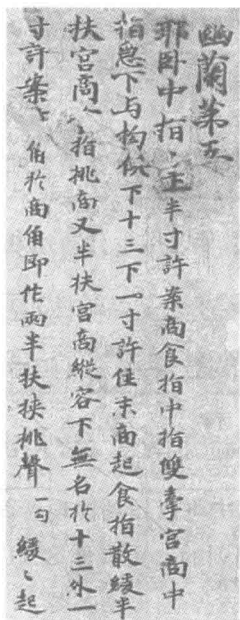 幽蘭第五
耶卧中指十上半寸許案商食指中指雙牽宮商中
指急下与拘俱下十三下一寸許住末商起食指散緩半
扶宮商指挑商又半扶宮商縱容下無名於十三外一
寸許案角於商角即作兩半扶挾挑聲 一句 緩〻起